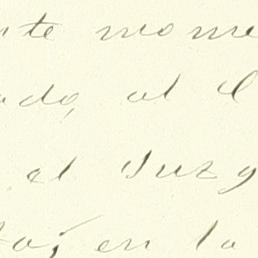 nte mome
ado, al C
el Juzg
ta, en la